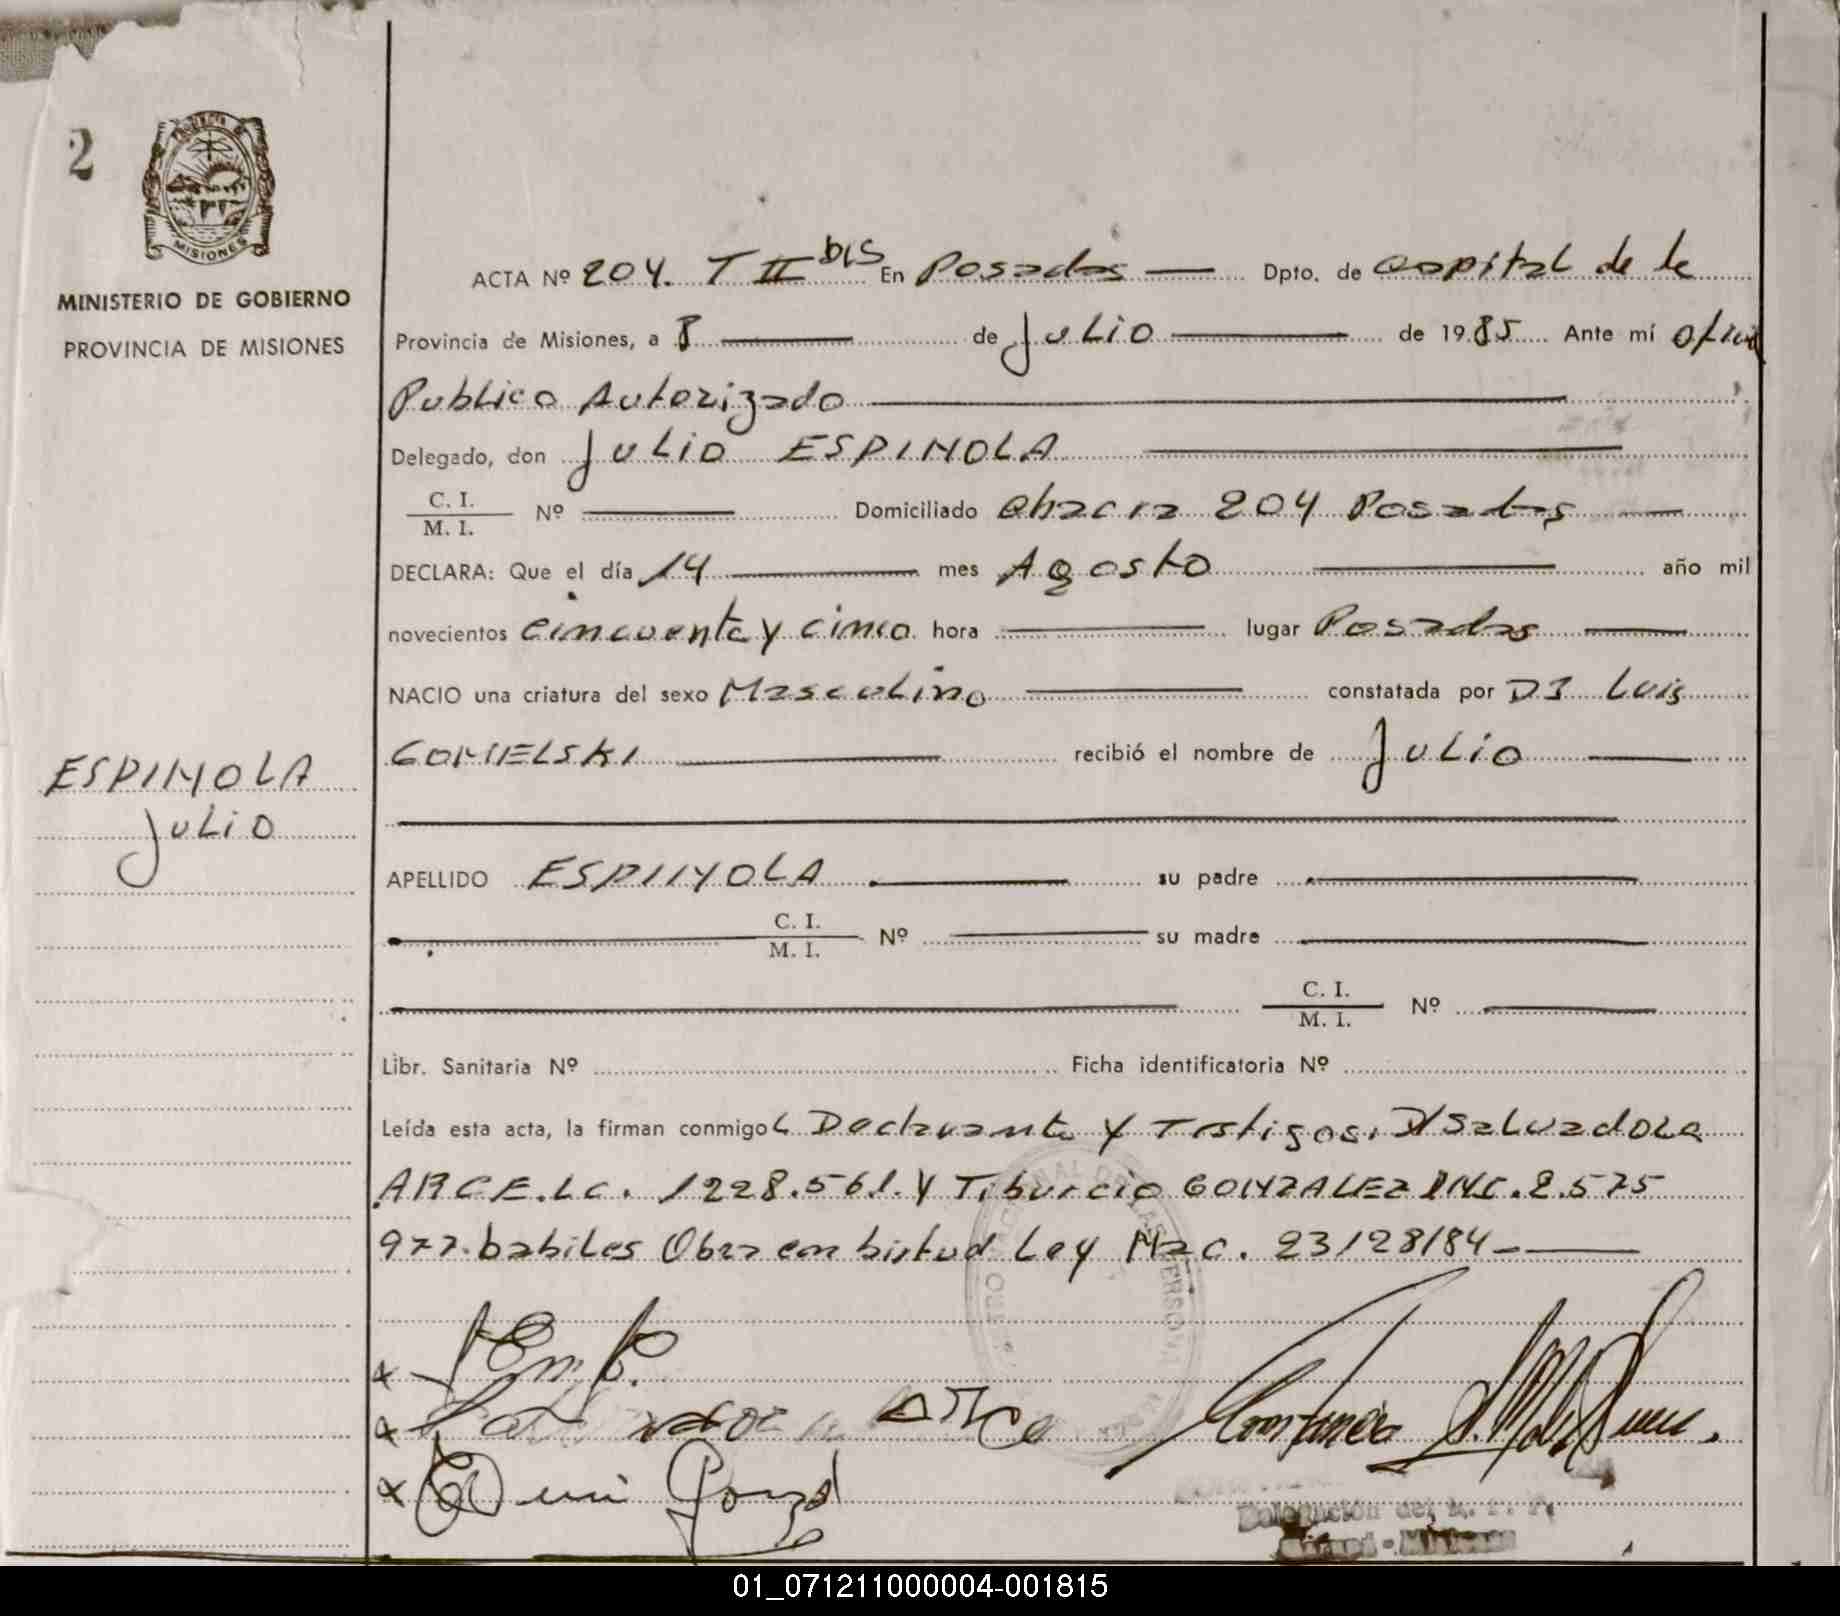 2
PROVINCIA DE
MISIONES
MINISTERIO DE GOBIERNO
PROVINCIA DE MISIONES
ESPINOLA
Julio
ACTA Nº 204. T II bis En Posadas Dpto. de capital de la
Provincia de Misiones, a 8 de Julio de 1985 Ante mí oficial
Publico Autorizado
Delegado, don Julio ESPINOLA
C. I.
M. I. Nº Domiciliado Chacra 204 Posadas
DECLARA: Que el día 14 mes Agosto año mil
novecientos cincuenta y cinco hora lugar Posadas
NACIO una criatura del sexo Masculino constatada por DI Luis
GOMELSKI recibió el nombre de Julio
APELLIDO ESPINOLA su padre
C. I.
M. I. Nº su madre
C. I.
M. I. Nº
Libr. Sanitaria Nº Ficha identificatoria Nº
Leída esta acta, la firman conmigo Declarante y Testigos. D/Salvadora
ARCE. LC. 1228.561. Y Tiburcio GONZALEZ 2.575
977. habiles Obra en birtud Ley Nac. 23/28/84
x
x Arce
x
Delegación del R. P. P.
- Misiones
01_071211000004-001815